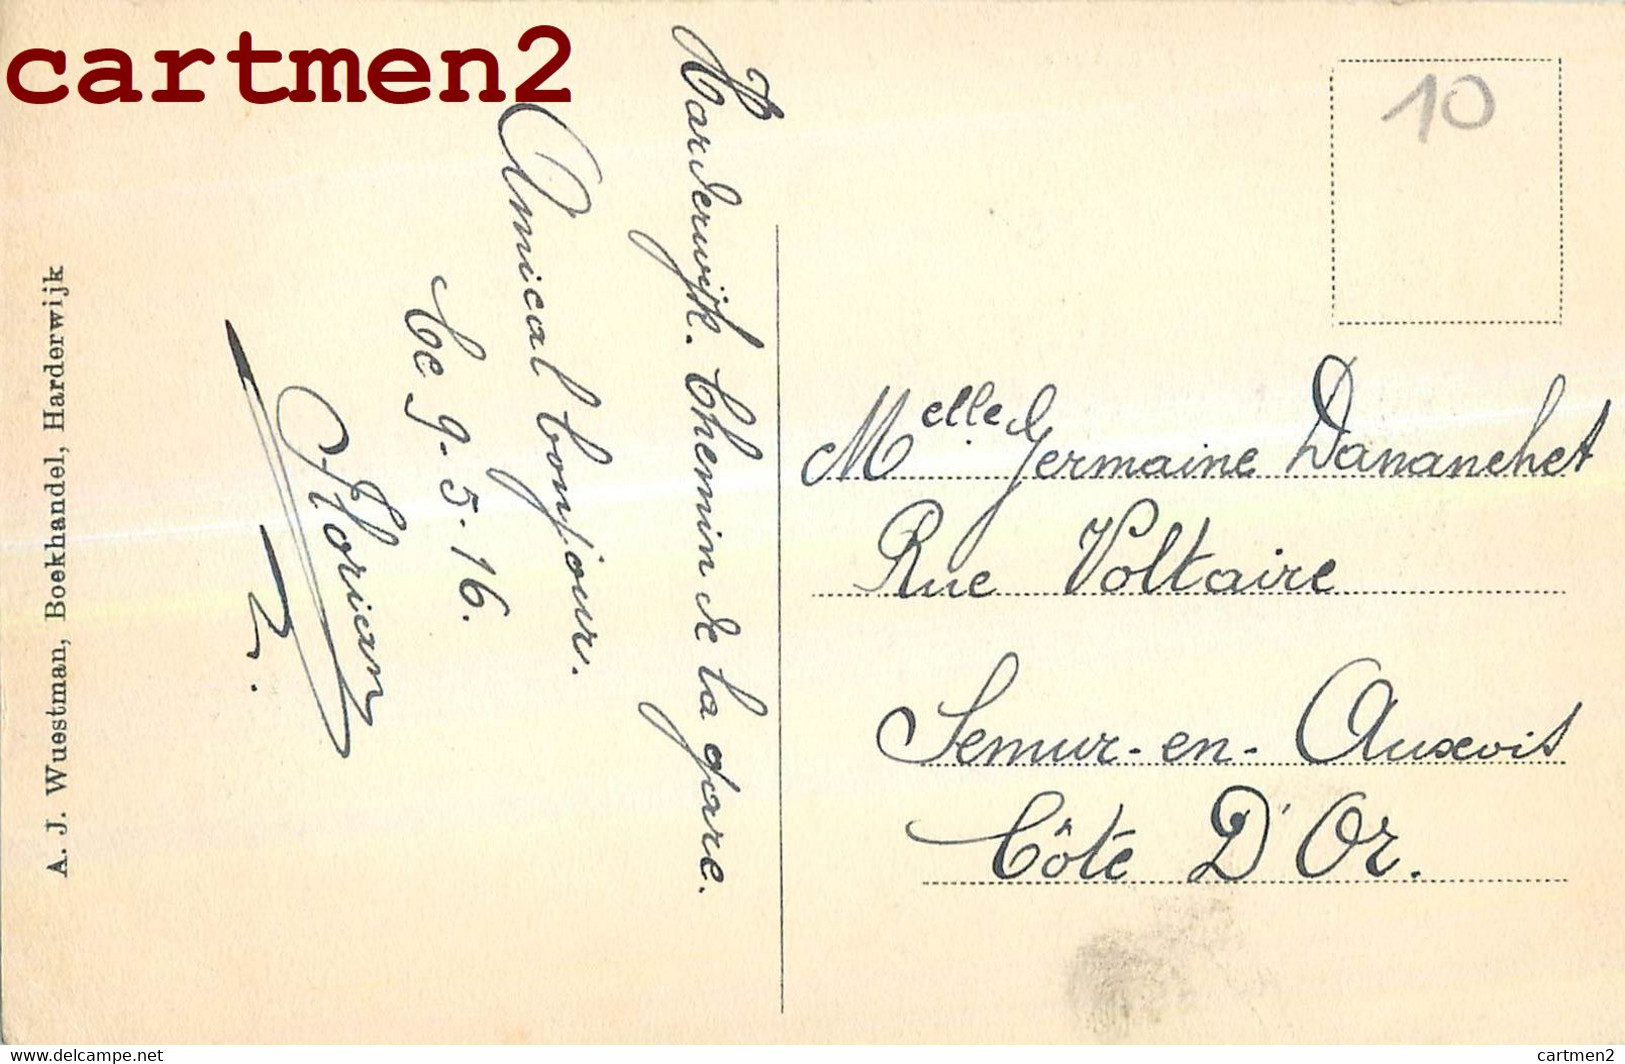 cartmen2
10
Harderwijk. Chemin de la gare.
Amical bonjour.
Ce 9-5-16.
Florian
A. J. Wuestman, Boekhandel, Harderwijk
Melle Germaine Dananchet
Rue Voltaire
Semur-en-Auxois
Côte D'Or.
https://www.delcampe.net
cartmen2